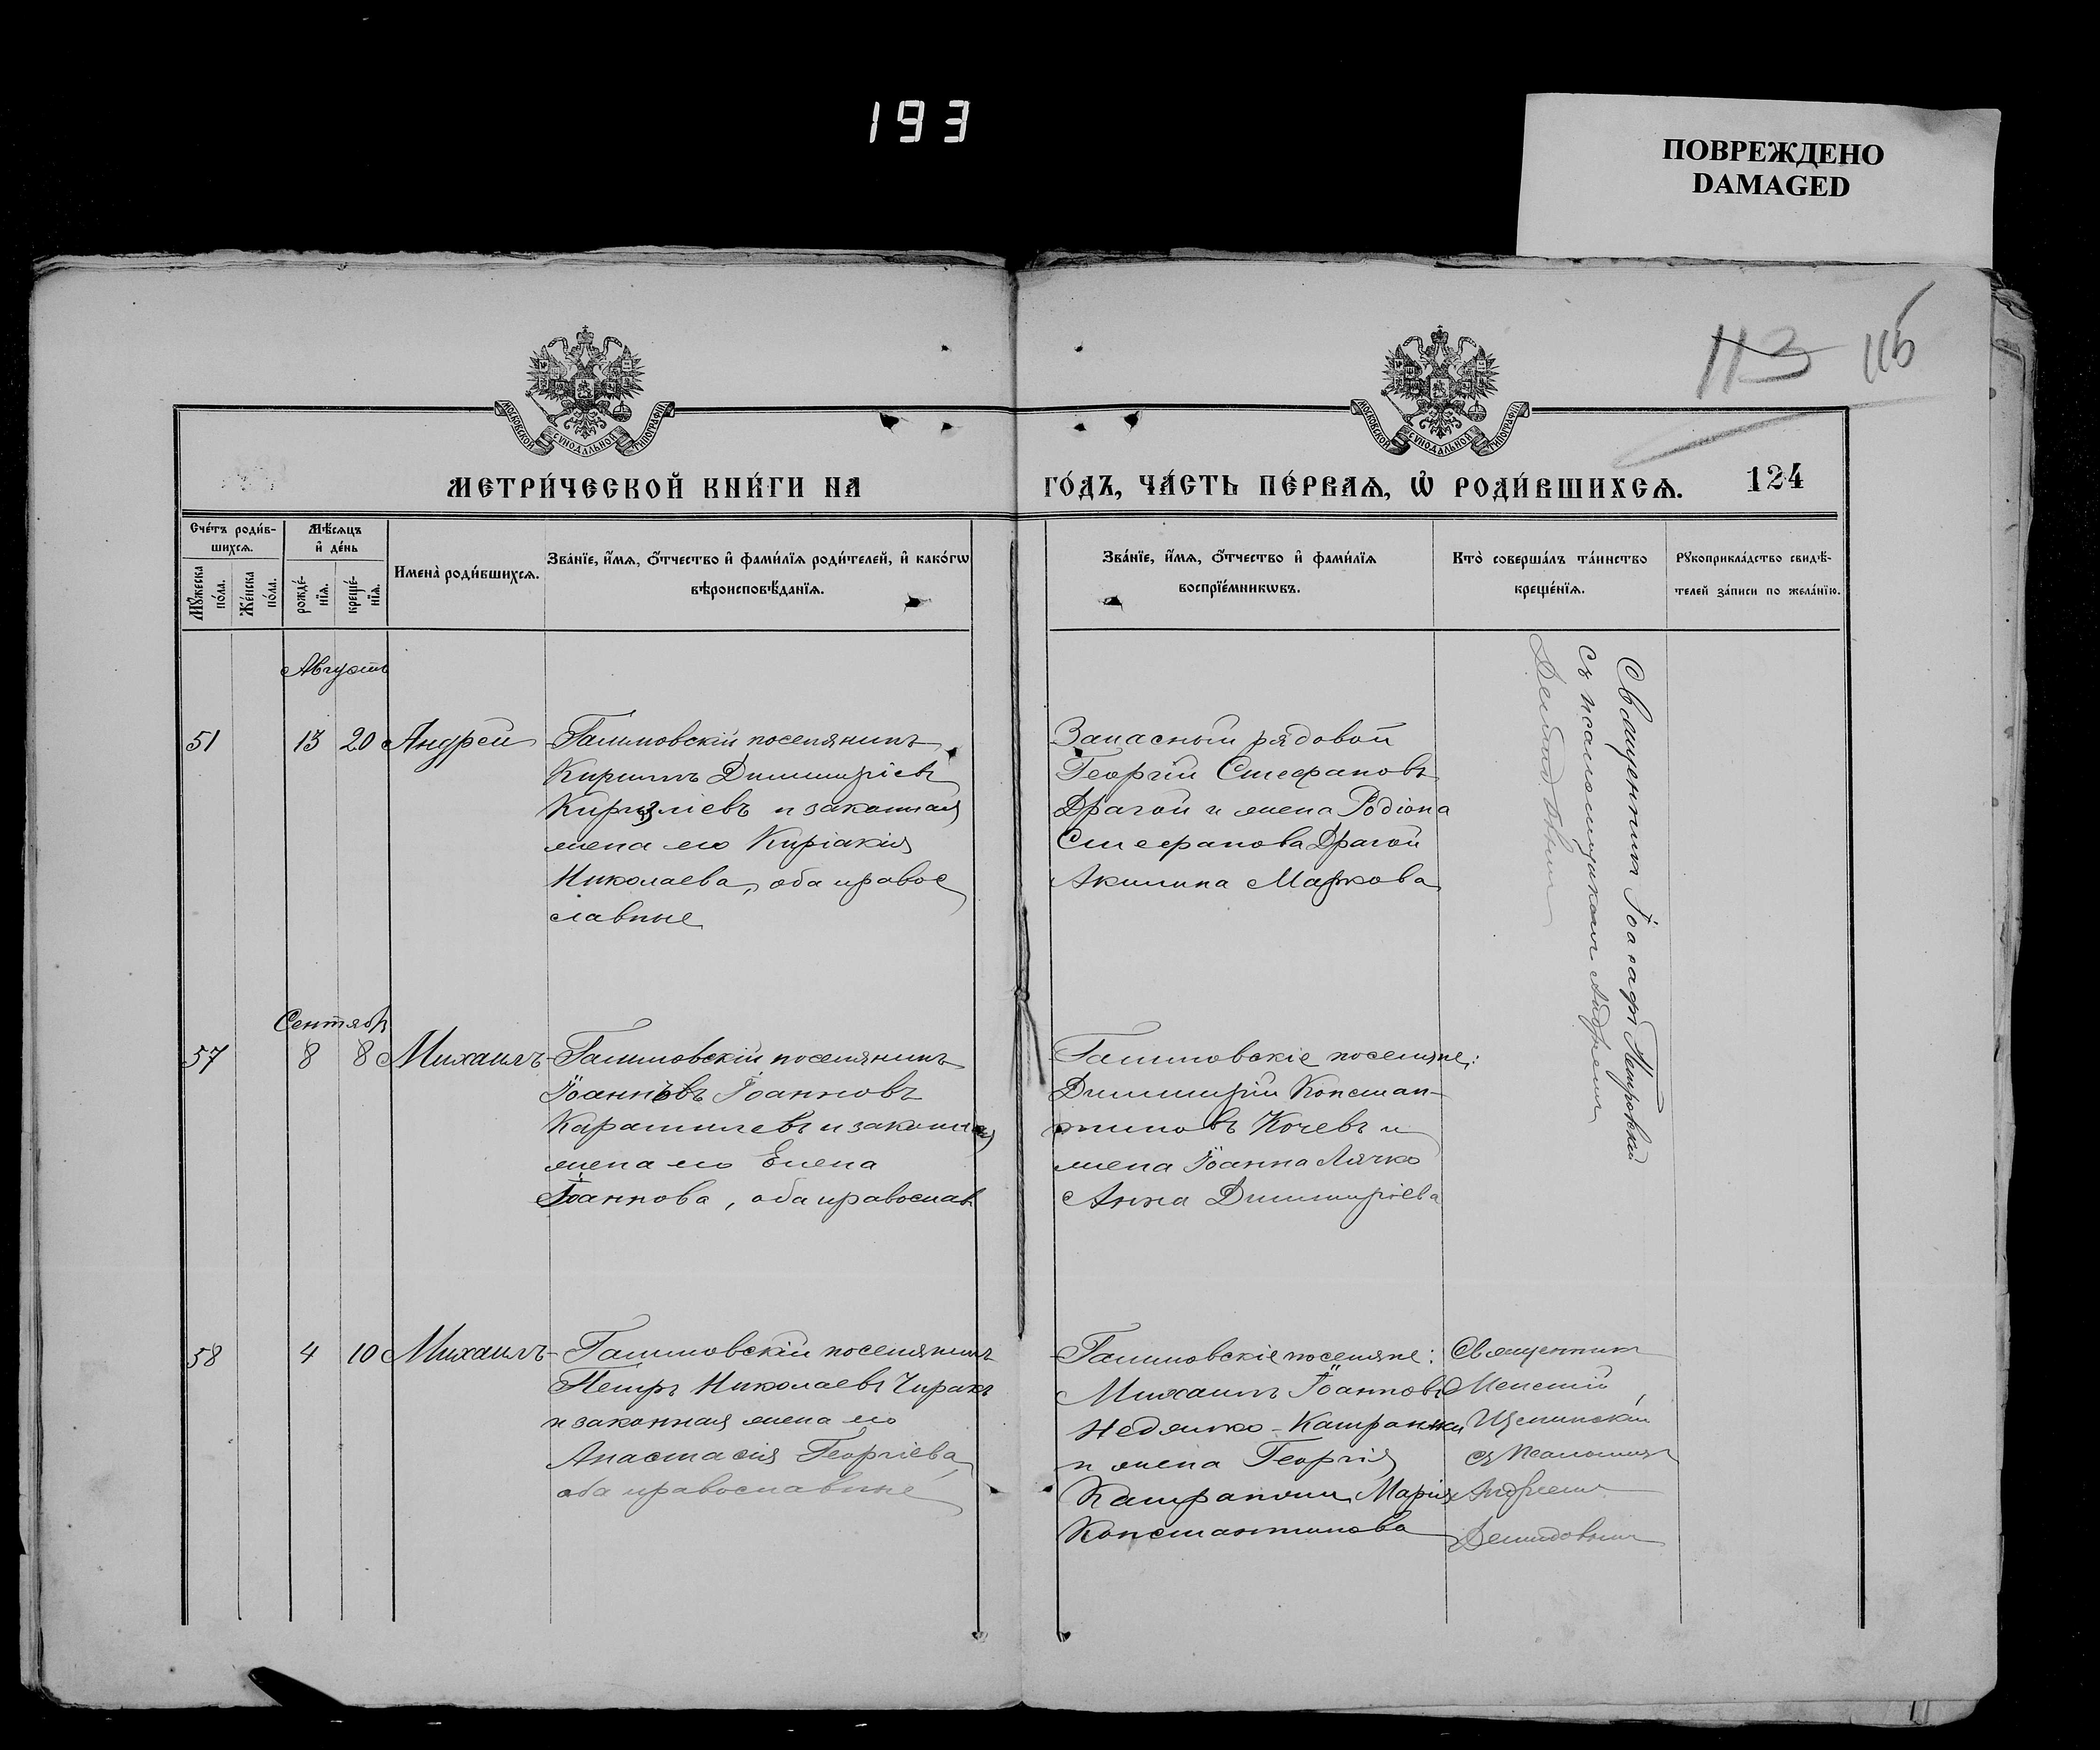 193
ПОВРЕЖДЕНО
DAMAGED
113 116
МОСКОВСКОЙ СѴНОДАЛЬНОЙ ТИПОГРАФІИ
МОСКОВСКОЙ СѴНОДАЛЬНОЙ ТИПОГРАФІИ
МЕТРИ́ЧЕСКОЙ КНИ́ГИ НА
ГО́ДЪ, ЧА́СТЬ ПЕ́РВАѦ, Ѡ҆ РОДИ́ВШИХСѦ.
124
Сче́тъ роди́в-
шихсѧ.
Мꙋ́жеска
по́ла.
Же́нска
по́ла.
Мѣ́сѧцъ
и҆ де́нь
рожде́-
нїѧ.
креще́-
нїѧ.
Имена̀ роди́вшихсѧ.
Зва́нїе, и҆́мѧ, ѻ҆́тчество и҆ фами́лїѧ роди́телей, и҆ како́гѡ
вѣроисповѣ́данїѧ.
Зва́нїе, и҆́мѧ, ѻ҆́тчество и҆ фами́лїѧ
воспрїе́мникѡвъ.
Кто̀ соверша́лъ та́инство
креще́нїѧ.
Рꙋкоприкла́дство свидѣ́-
телей за́писи по жела́нїю.
Августъ
51 13 20 Андрей
поселянинъ
Кириллъ Димитріевъ
и законная
жена его Киріакія
Николаева, оба правос
лавные
Запасный рядовой
Георгій Стефановъ
Драгой и жена Родіона
Стефанова Драгой
Акилина Маркова
Священникъ Іоасафъ Петровскій
съ псаломщикомъ Андреемъ
Демидовымъ
Сентябр
57 8 8 Михаилъ
поселянинъ
Іоанновъ
и законная
жена его Елена
Іоаннова, оба православ
поселяне:
Димитрій Констан-
тиновъ Кочевъ и
жена Іоанна
Анна Димитріева
58 4 10 Михаилъ
поселянинъ
Петръ Николаевъ Чиракъ
и законная жена его
Анастасія Георгіева,
оба православные
поселяне:
Михаилъ Іоанновъ
и жена Георгія
Марія
Константинова
Священникъ
съ псаломщ
Андреемъ
Демидовымъ